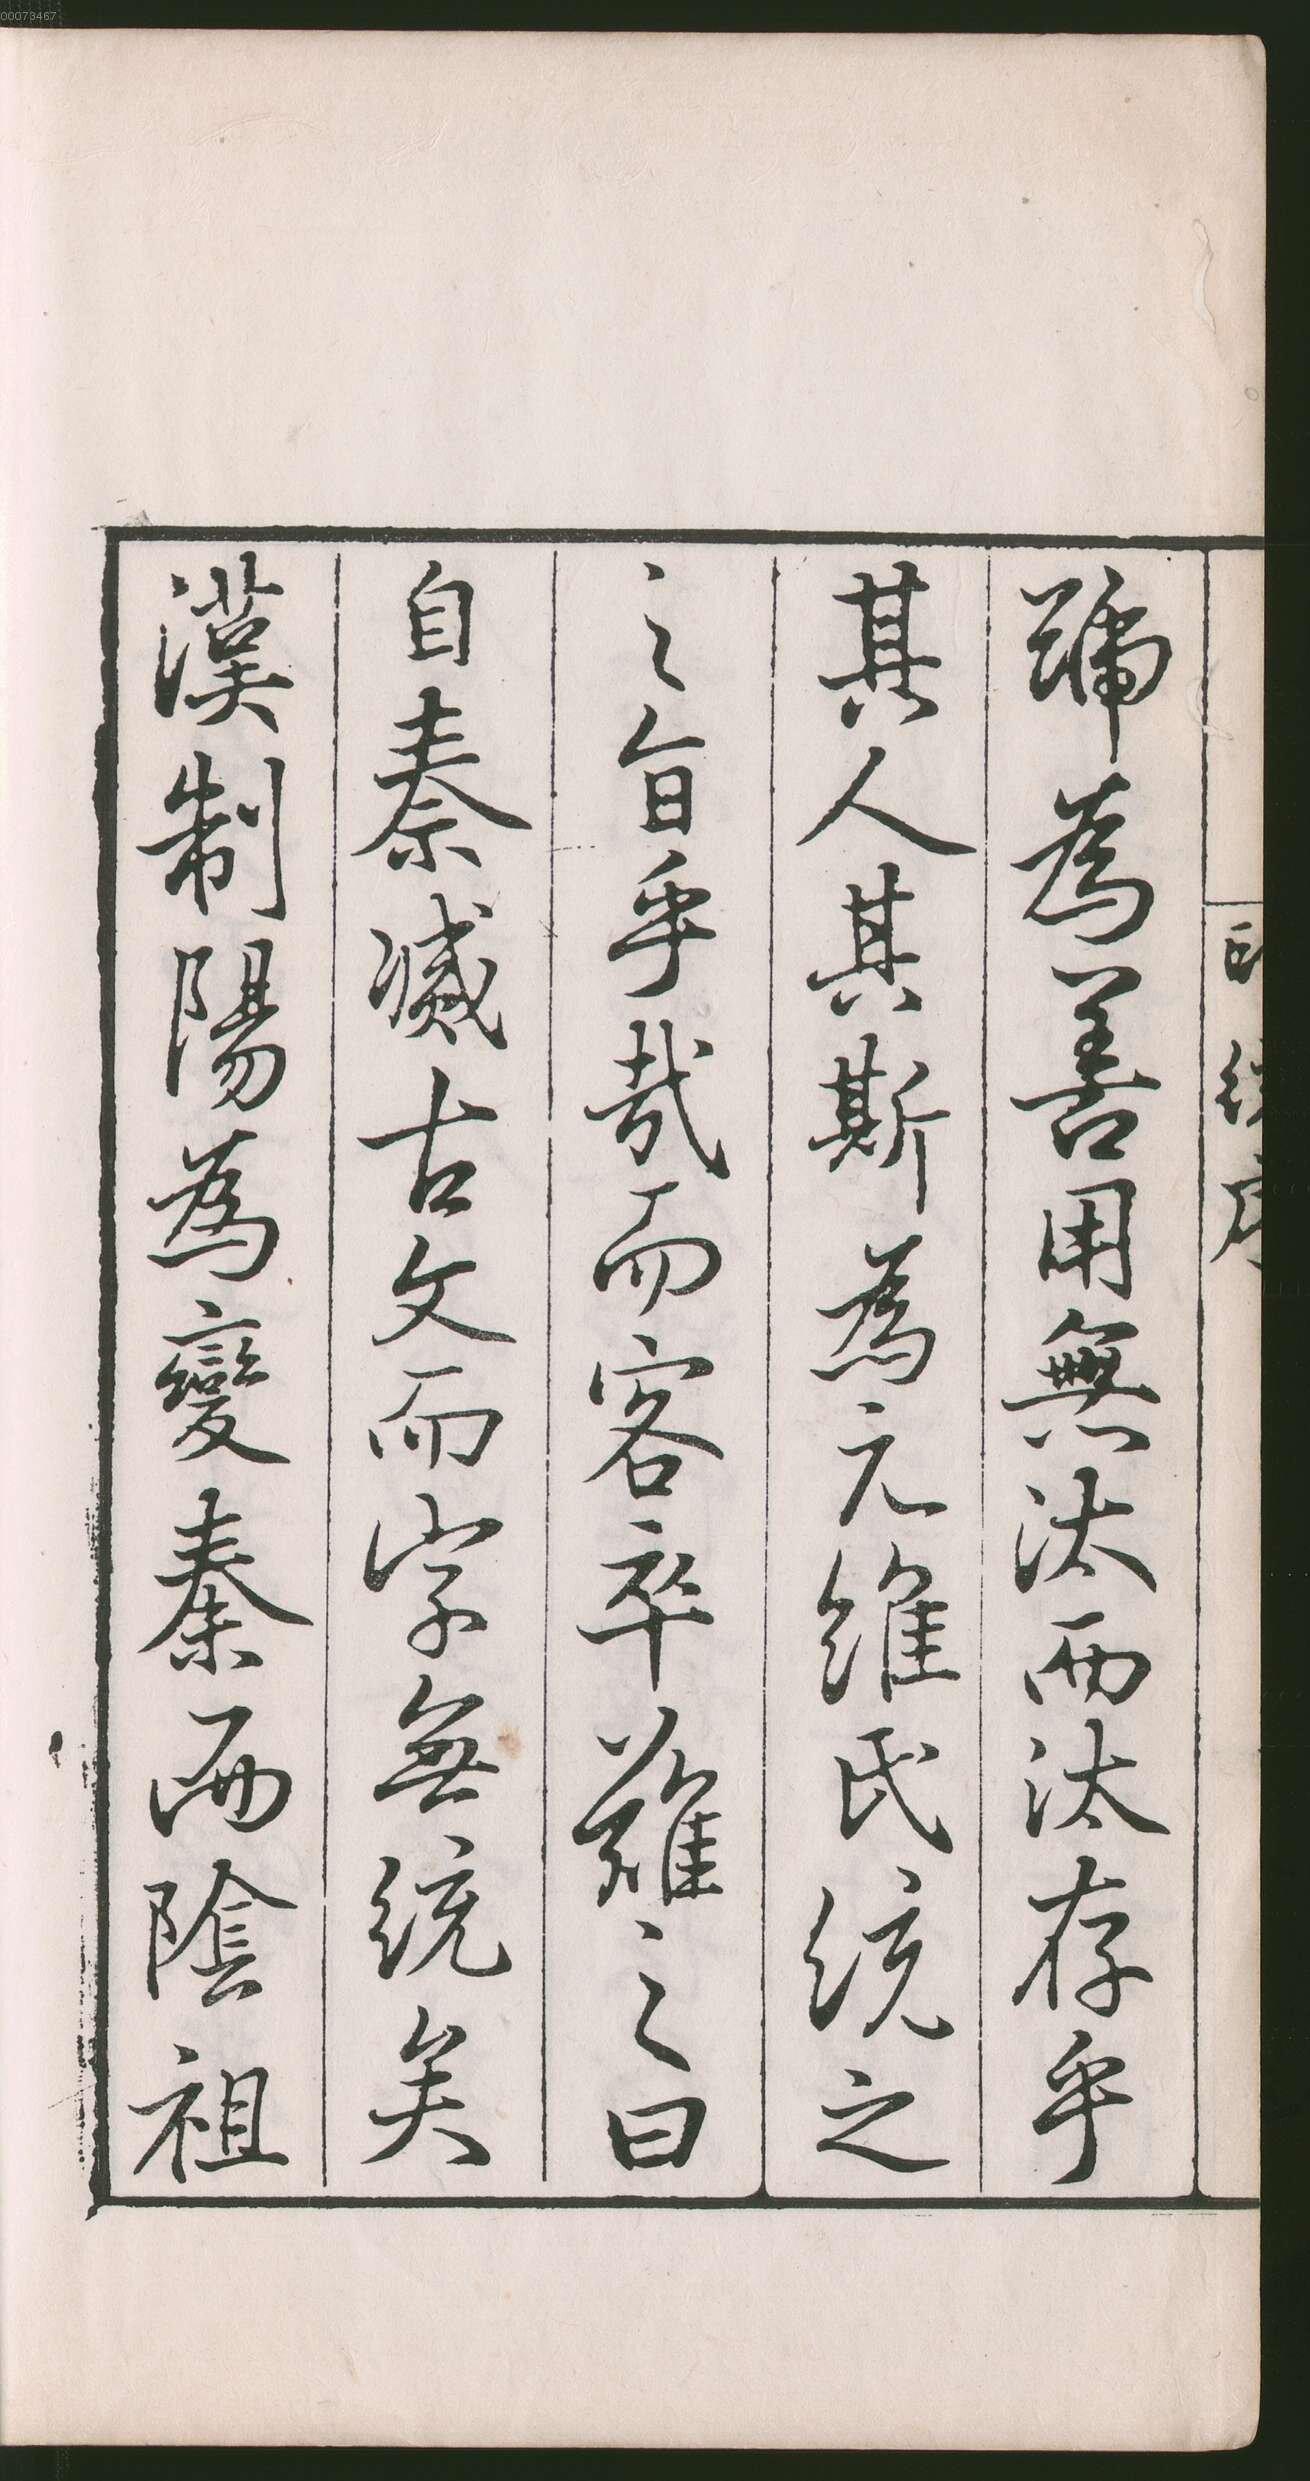 00073467
印統序
號為善用無汰而汰存乎
其人其斯為元維氏統之
之旨乎哉而客卒難之曰
自秦滅古文而字無統矣
漢制陽為變秦而陰祖